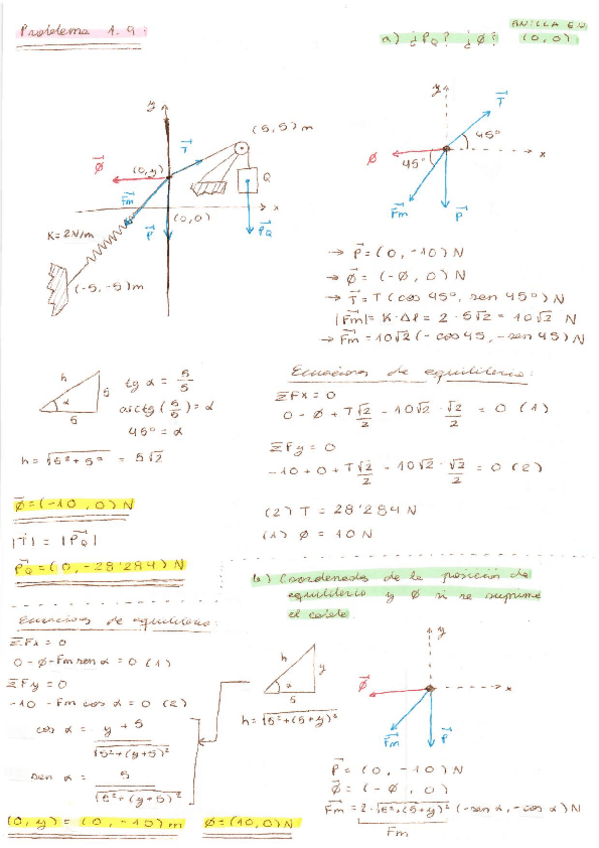 Problema 1.9:
ANILLA EN
a) ¿PQ? ¿Ø? (0,0)
y
T
(5,5)m
Ø
(0,y)
Q
Fm
x
(0,0)
P
PQ
K=2N/m
(-5,-5)m
y
T
45º
x
Ø
45º
Fm
P
→ P = (0, -10) N
→ Ø = (-Ø, 0) N
→ T = T (cos 45º, sen 45º) N
|Fm| = K·Δl = 2·5√2 = 10√2 N
→ Fm = 10√2 (-cos 45, -sen 45) N
h
α
5
5
tg α = 5/5
arctg(5/5) = α
45º = α
h = √5²+5² = 5√2
Ecuaciones de equilibrio:
ΣFx = 0
0 - Ø + T√2/2 - 10√2 · √2/2 = 0 (1)
ΣFy = 0
-10 + 0 + T√2/2 - 10√2 · √2/2 = 0 (2)
(2) T = 28'284 N
(1) Ø = 10 N
Ø = (-10, 0) N
|T| = |PQ|
PQ = (0, -28'284) N
b) Coordenadas de la posición de
equilibrio y Ø si se suprime
el cable.
Ecuaciones de equilibrio:
ΣFx = 0
0 - Ø - Fm sen α = 0 (1)
ΣFy = 0
-10 - Fm cos α = 0 (2)
cos α = y + 5 / √5²+(y+5)²
sen α = 5 / √5²+(y+5)²
h
y
α
5
h = √5²+(5+y)²
y
x
Ø
Fm
P
P = (0, -10) N
Ø = (-Ø, 0)
Fm = 2·√5²+(5+y)² (-sen α, -cos α) N
Fm
(0, y) = (0, -10) m
Ø = (10, 0) N